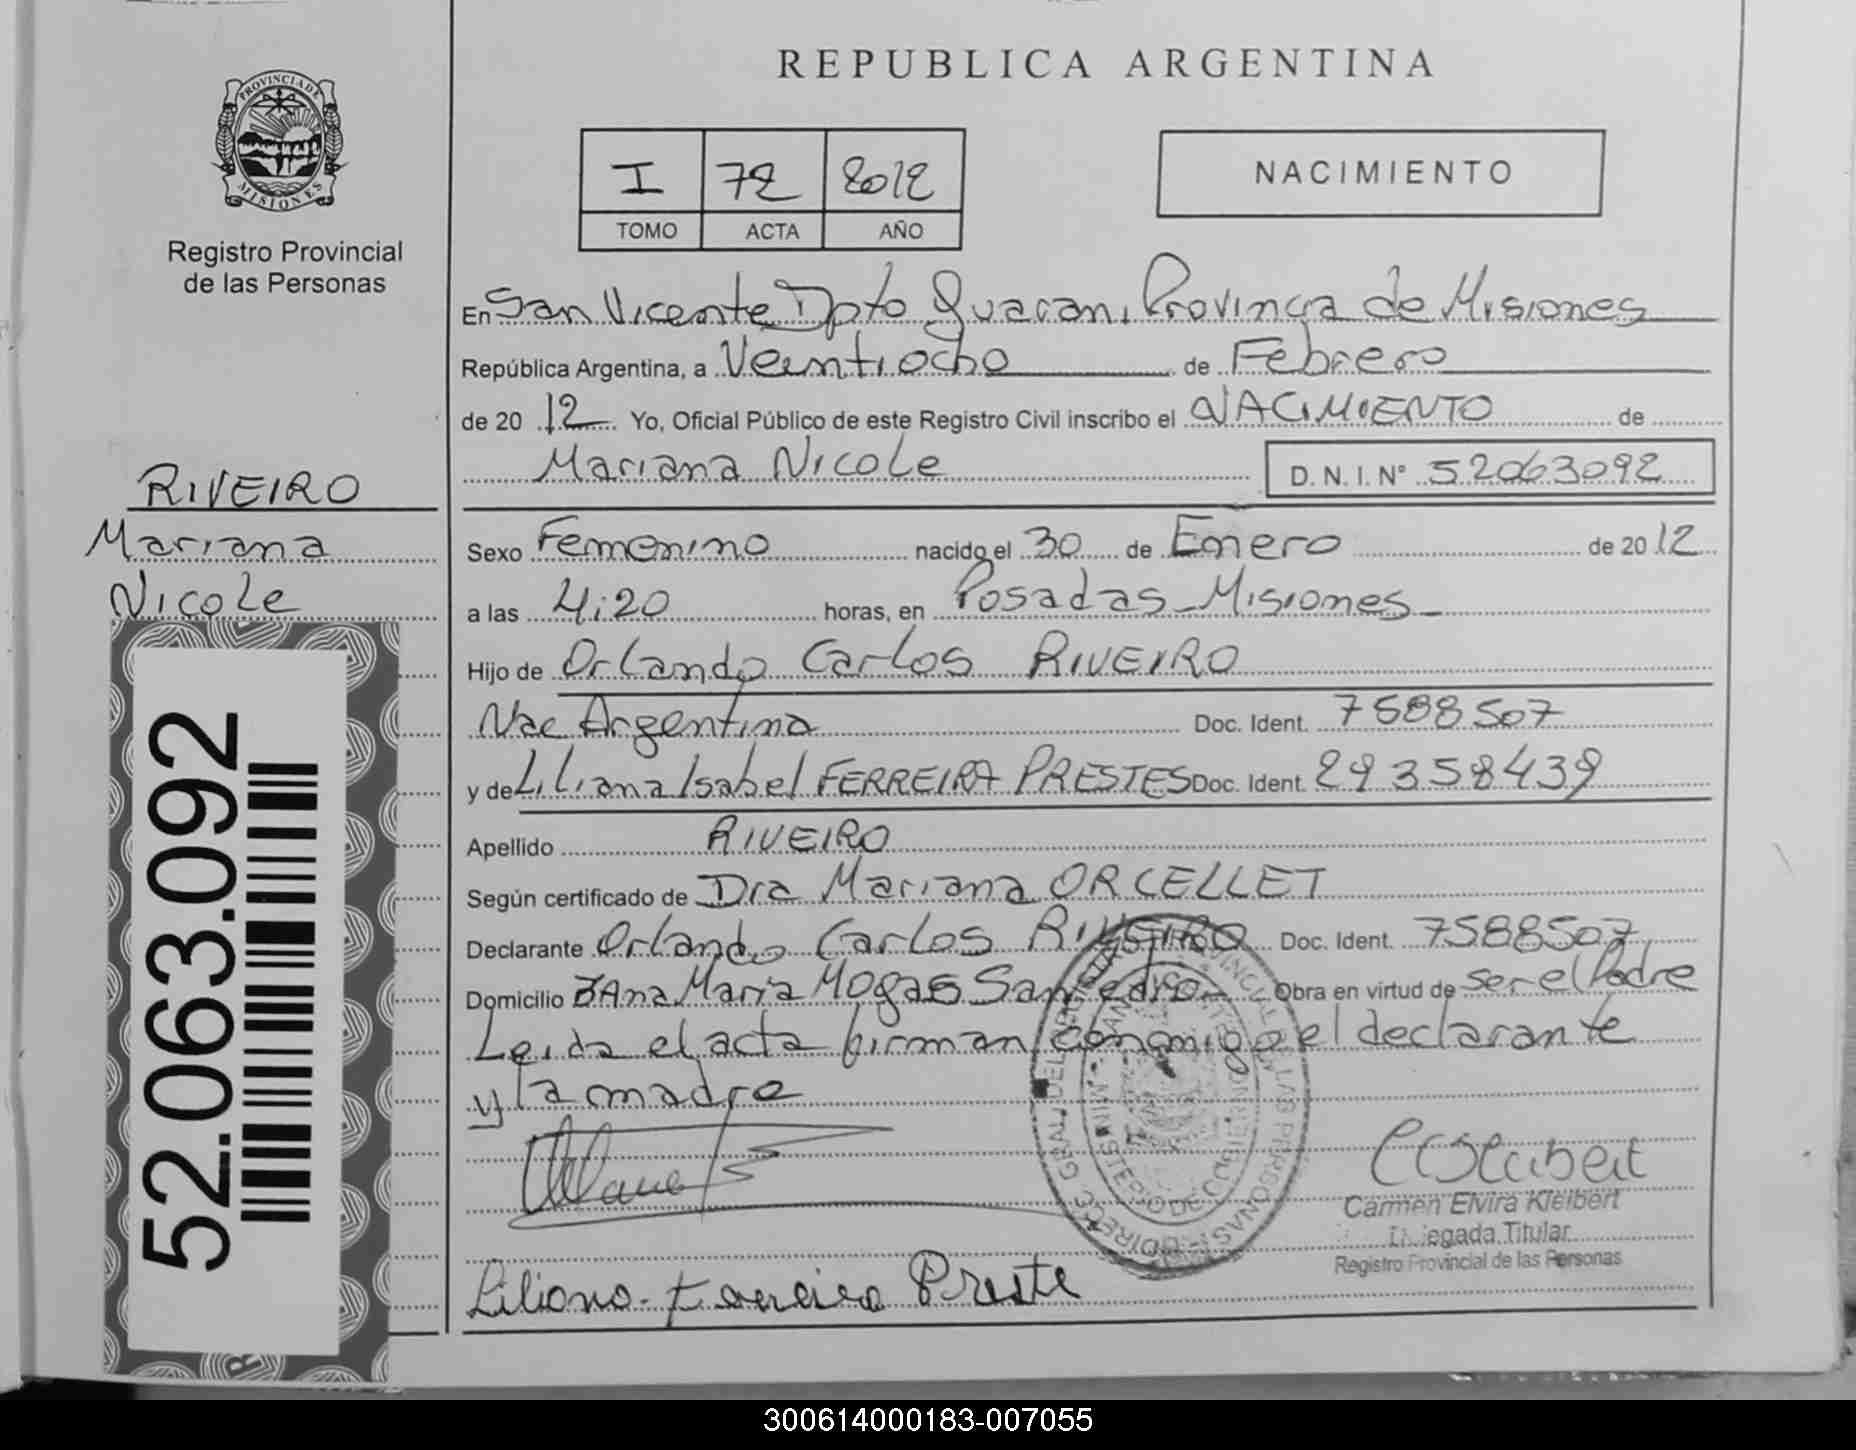 REPUBLICA ARGENTINA
PROVINCIA DE MISIONES
Registro Provincial
de las Personas
I 72 2012
TOMO ACTA AÑO
NACIMIENTO
En San Vicente Dpto Guarani Provincia de Misiones
República Argentina, a Veintiocho de Febrero
de 20 12 Yo, Oficial Público de este Registro Civil inscribo el NACIMIENTO de
Mariana Nicole D.N.I. N° 52063092
RIVEIRO
Mariana
Nicole
52.063.092
Sexo Femenino nacido el 30 de Enero de 20 12
a las 4:20 horas, en Posadas - Misiones
Hijo de Orlando Carlos RIVEIRO
Nac Argentina Doc. Ident. 7588507
y de Liliana Isabel FERREIRA PRESTES Doc. Ident. 29358439
Apellido RIVEIRO
Según certificado de Dra Mariana ORCELLET
Declarante Orlando Carlos RIVEIRO Doc. Ident. 7588507
Domicilio Ana Maria Mogas San Pedro Obra en virtud de ser el Padre
Leida el acta firman conmigo el declarante
y la madre
Carmen Elvira Kleibert
Delegada Titular
Registro Provincial de las Personas
Liliana Ferreira Preste
300614000183-007055